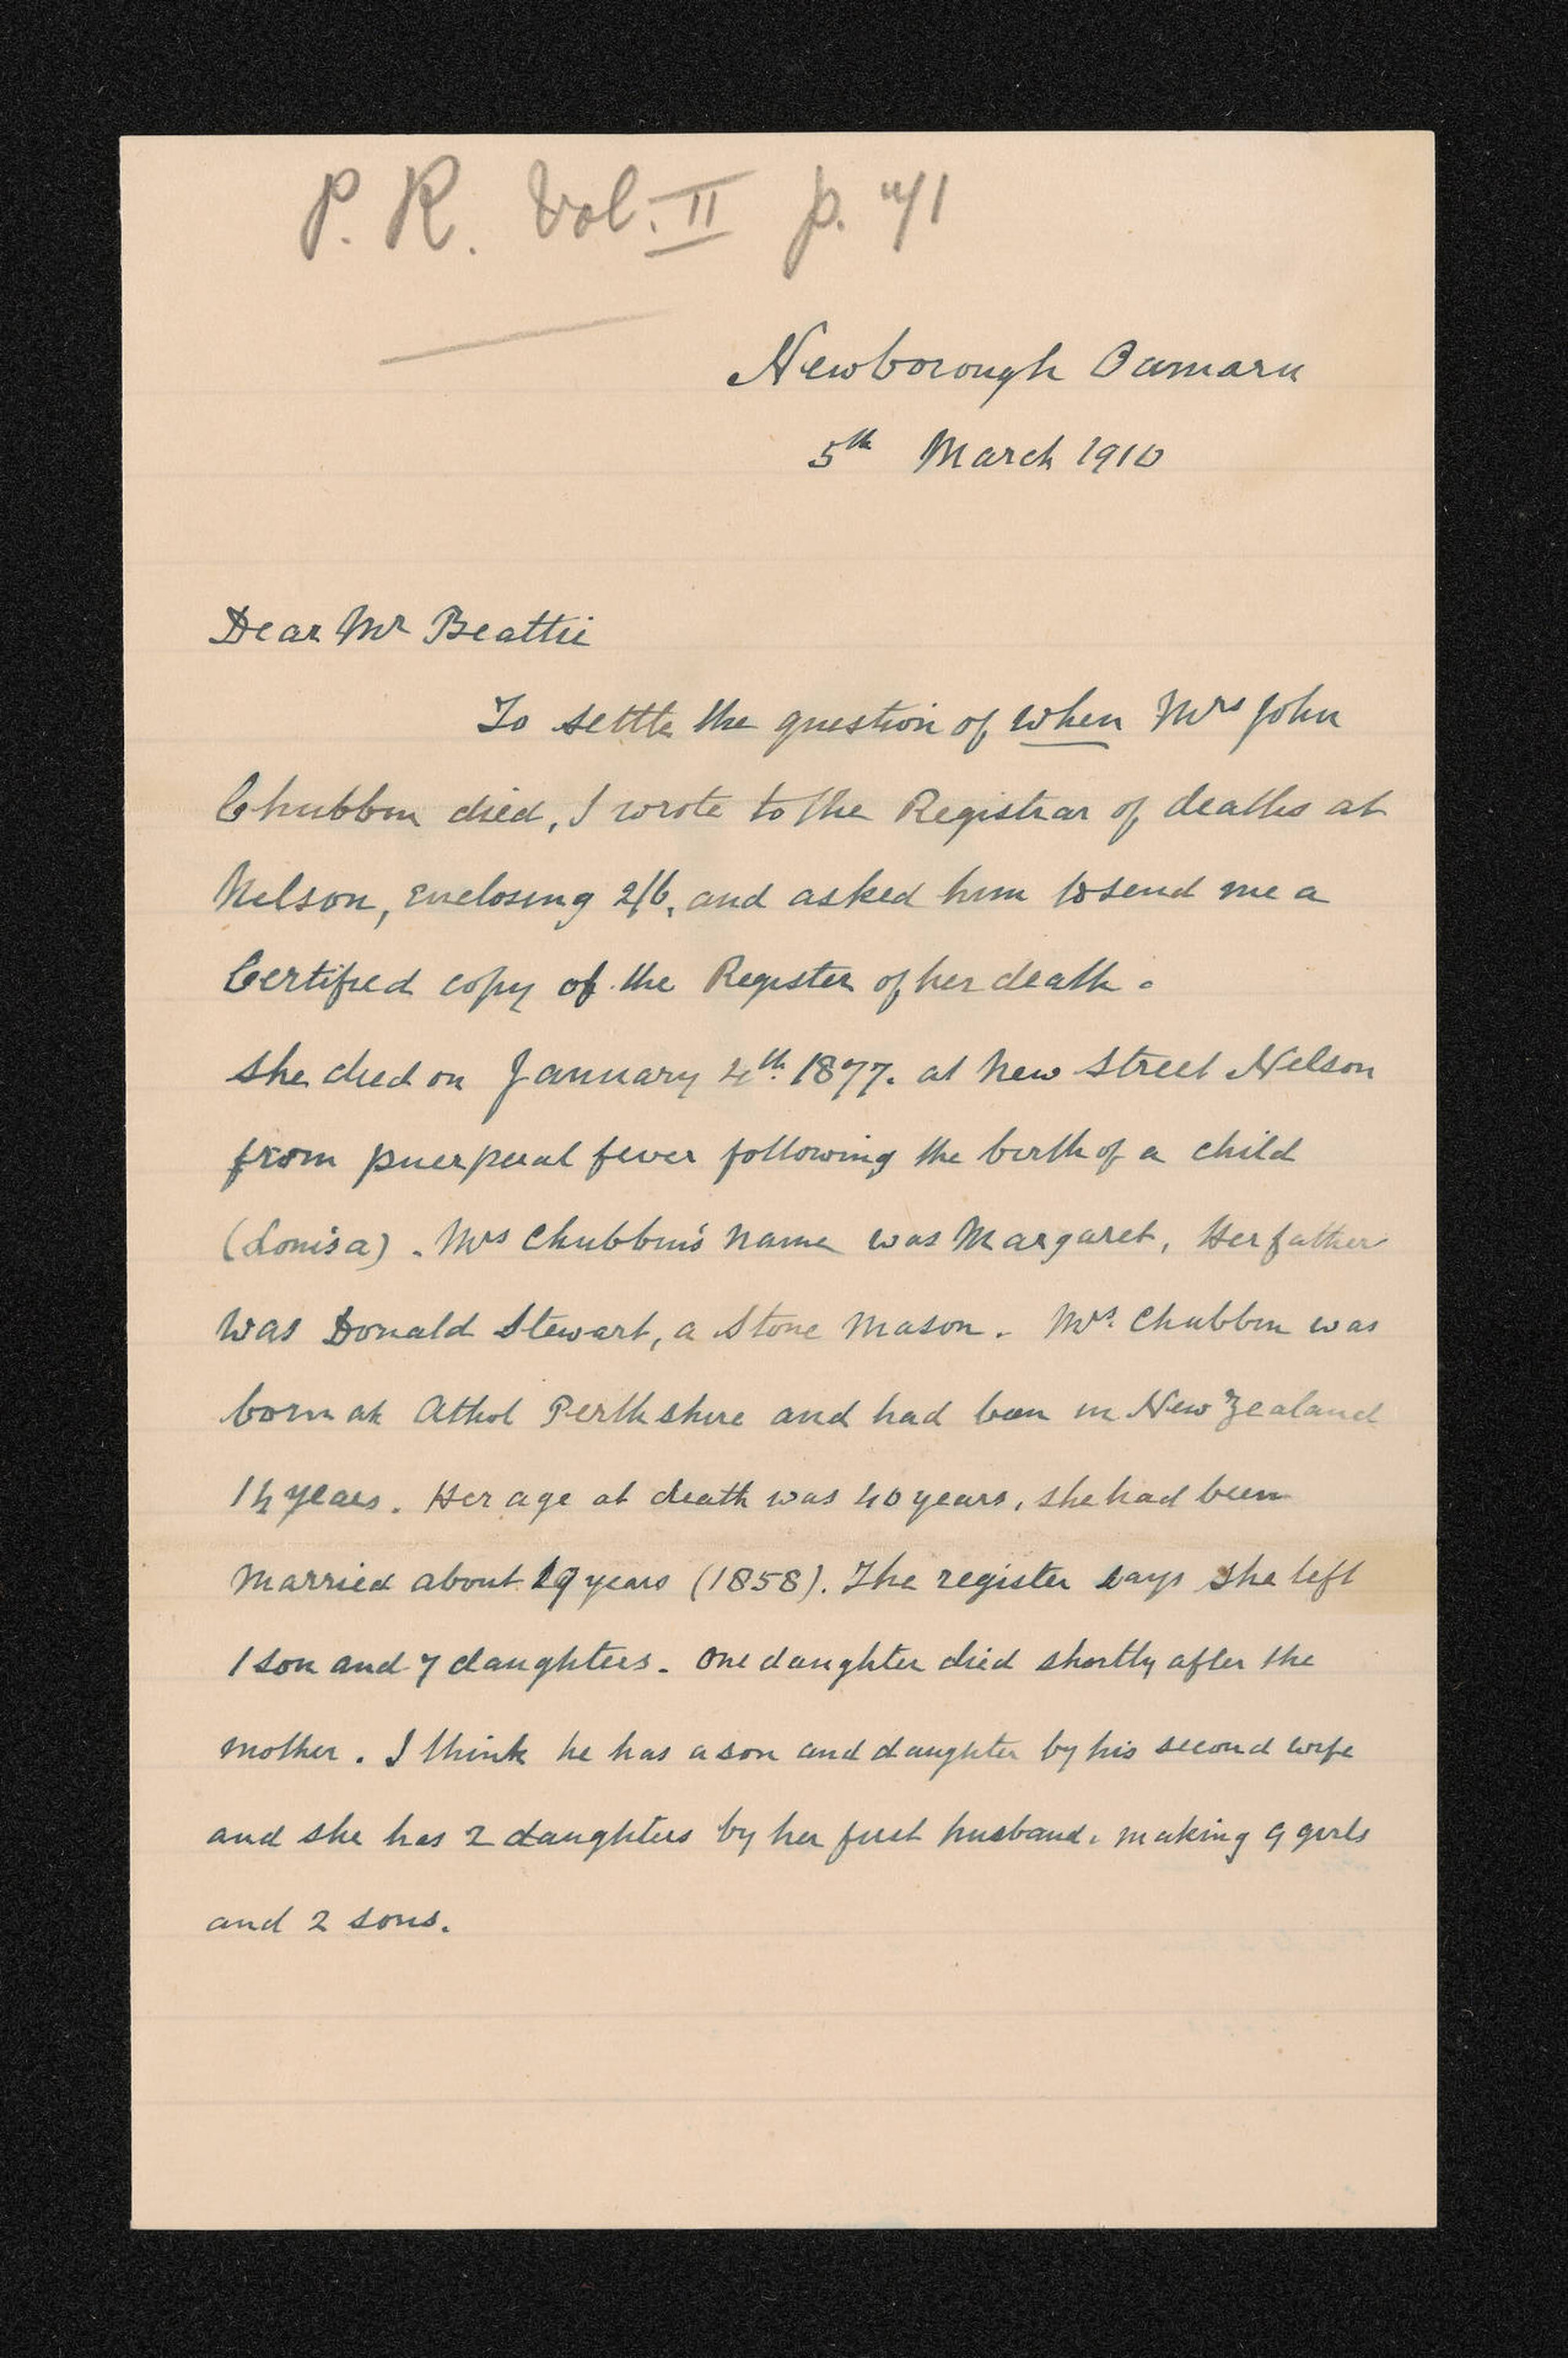 P. R. Vol. II p. 71
Newborough Oamaru
5th March 1910
Dear Mr Beattie
To settle the question of when Mrs John
Chubbin died, I wrote to the Registrar of deaths at
Nelson, enclosing 2/6, and asked him to send me a
Certified copy of the Register of her death.
She died on January 4th 1877. at New Street Nelson
from puerperal fever following the birth of a child
(Louisa). Mrs Chubbin's name was Margaret, Her father
was Donald Stewart, a Stone Mason. Mrs. Chubbin was
born at Athol Perthshire and had been in New Zealand
14 years. Her age at death was 40 years, she had been
married about 19 years (1858). The register says she left
1 son and 7 daughters. One daughter died shortly after the
mother. I think he has a son and daughter by his second wife
and she has 2 daughters by her first husband. making 9 girls
and 2 sons.